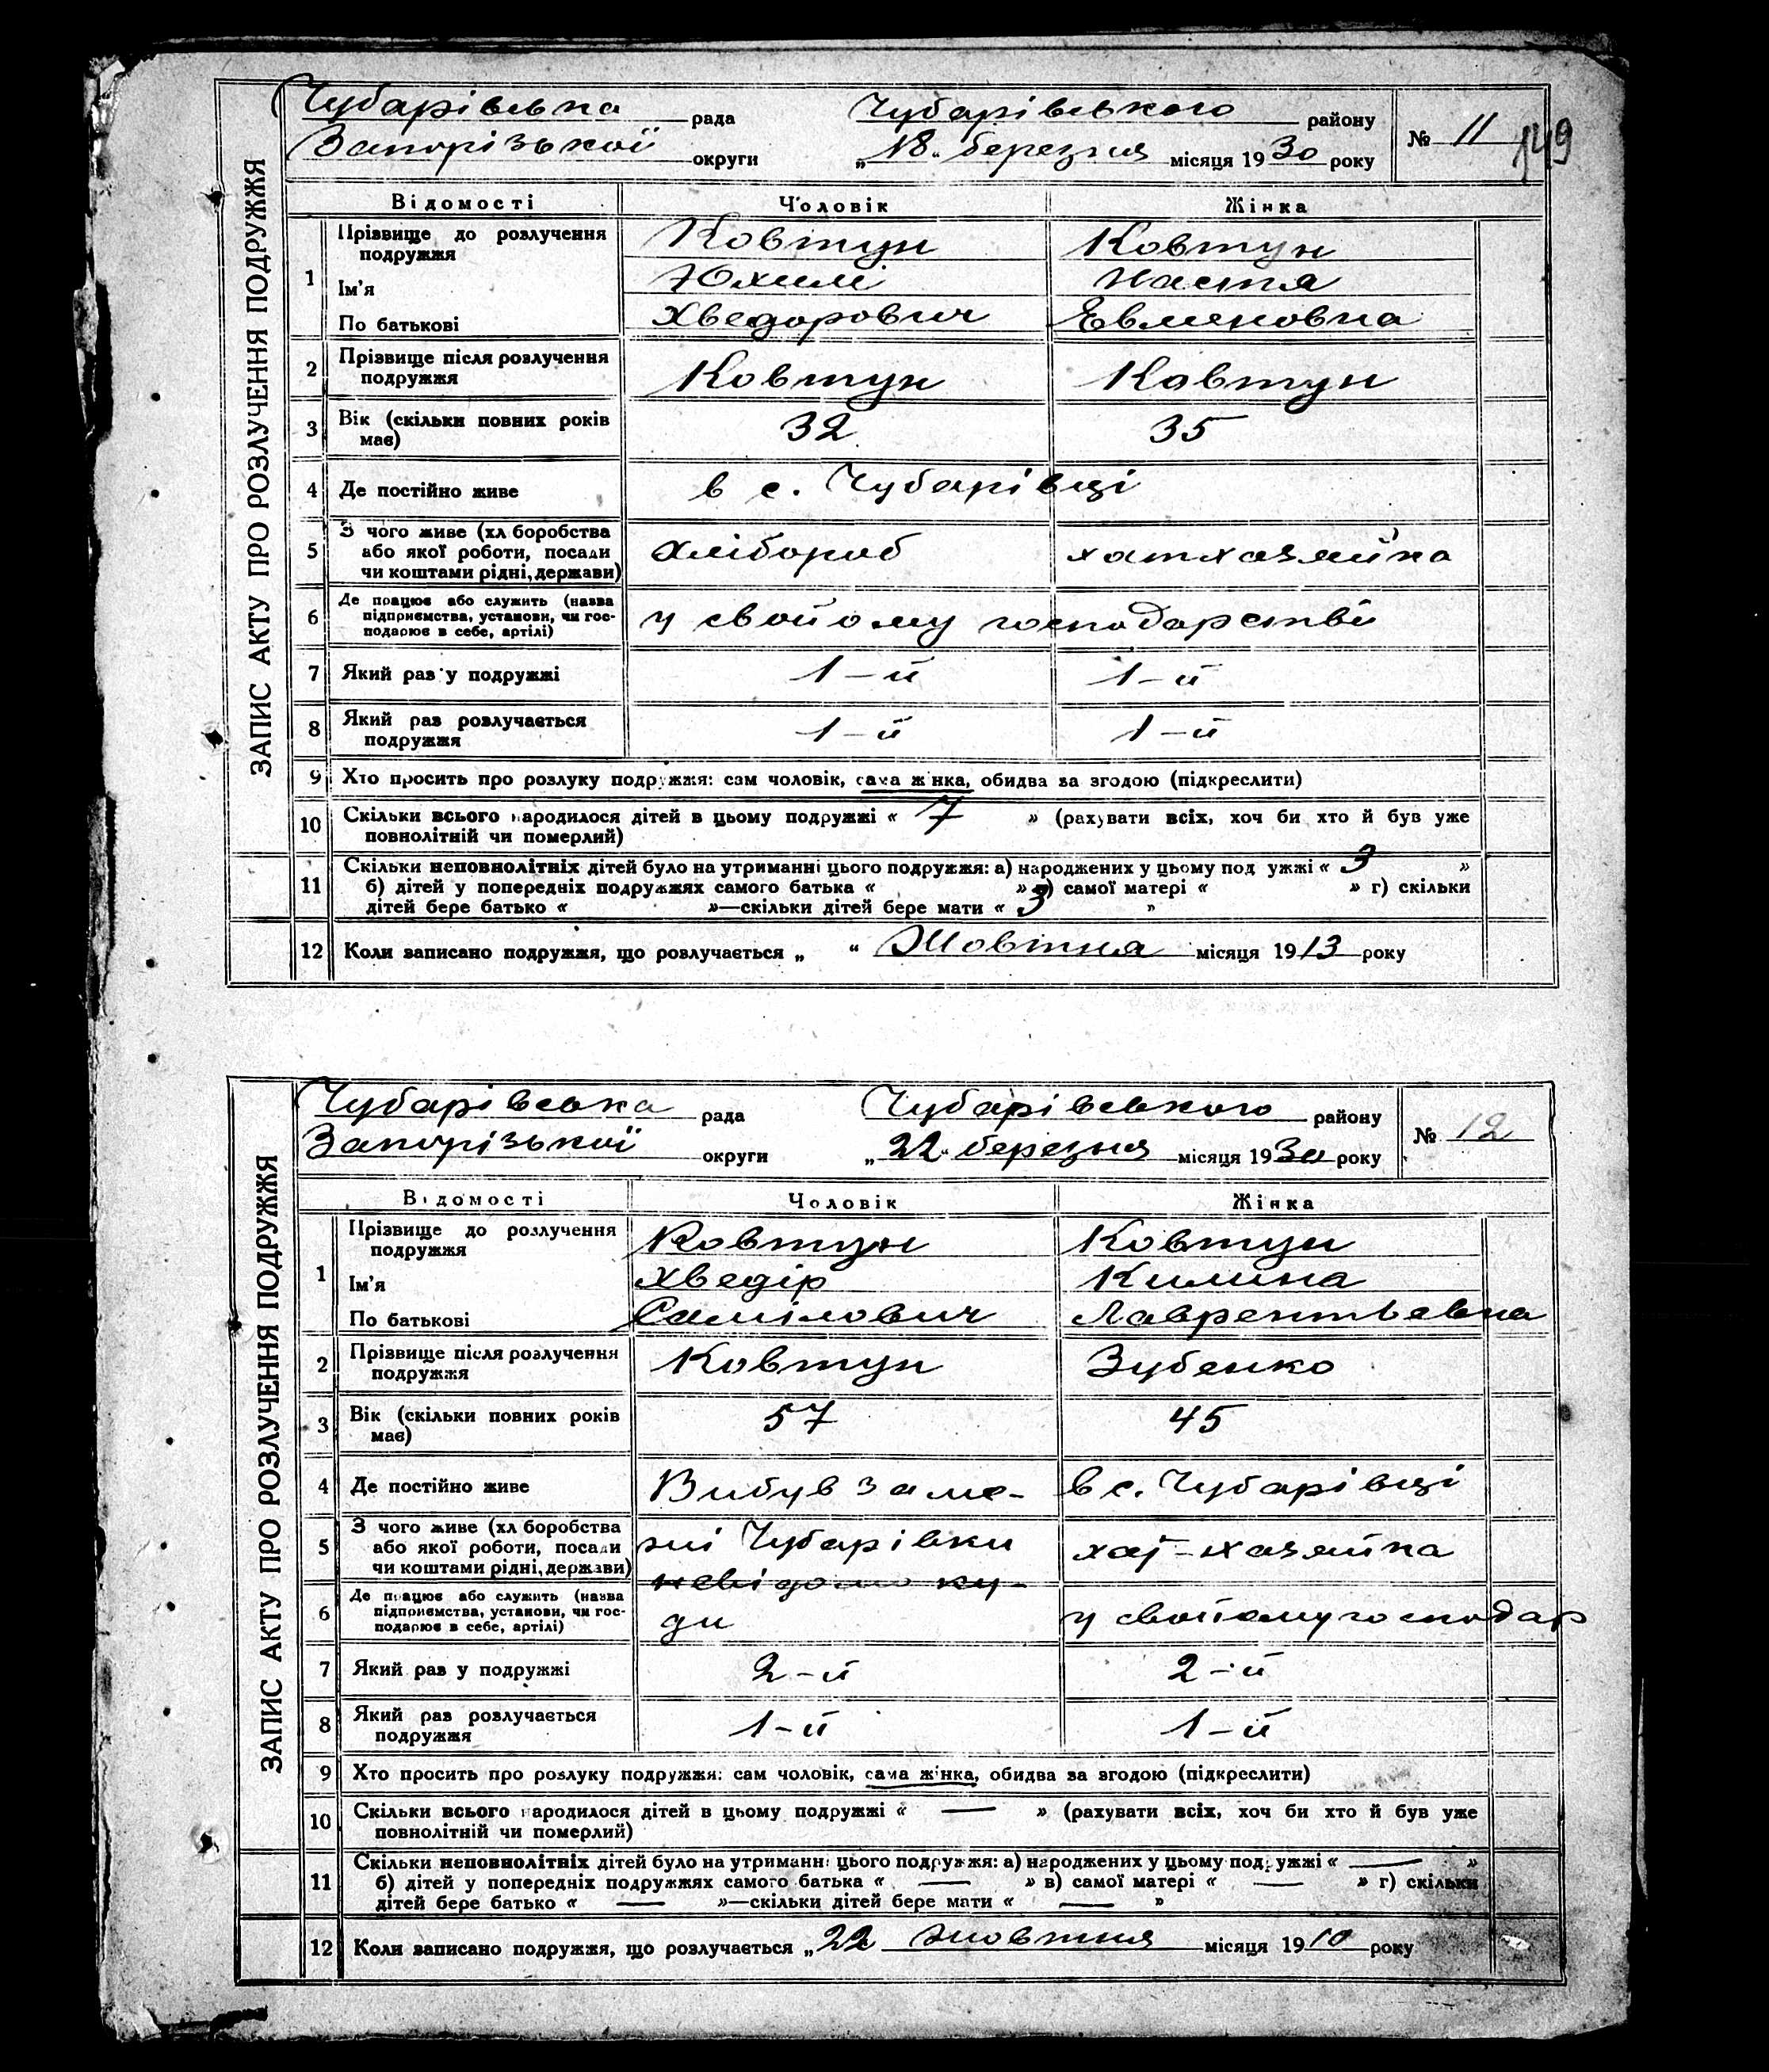 ЗАПИС АКТУ ПРО РОЗЛУЧЕННЯ ПОДРУЖЖЯ
Чубарівська рада Чубарівського району № 11 149
Запорізької округи „18“ березня місяця 1930 року
Відомості Чоловік Жінка
1 Прізвище до розлучення подружжя Ковтун Ковтун
Ім'я Юхим Настя
По батькові Хведорович Евменовна
2 Прізвище після розлучення подружжя Ковтун Ковтун
3 Вік (скільки повних років має) 32 35
4 Де постійно живе в с. Чубарівці
5 З чого живе (хліборобства
або якої роботи, посади
чи коштами рідні, держави) хлібороб хатхазяйка
6 Де працює або служить (назва
підприємства, установи, чи гос-
подарює в себе, артілі) у свойому господарстві
7 Який раз у подружжі 1-й 1-й
8 Який раз розлучається
подружжя 1-й 1-й
9 Хто просить про розлуку подружжя: сам чоловік, сама жінка, обидва за згодою (підкреслити)
10 Скільки всього народилося дітей в цьому подружжі « 7 » (рахувати всіх, хоч би хто й був уже
повнолітній чи померлий)
11 Скільки неповнолітніх дітей було на утриманні цього подружжя: а) народжених у цьому подружжі « 3 »
б) дітей у попередніх подружжях самого батька « » в) самої матері « » г) скільки
дітей бере батько « »—скільки дітей бере мати « 3 »
12 Коли записано подружжя, що розлучається „ “ Жовтня місяця 1913 року
ЗАПИС АКТУ ПРО РОЗЛУЧЕННЯ ПОДРУЖЖЯ
Чубарівська рада Чубарівського району № 12
Запорізької округи „22“ березня місяця 1930 року
Відомості Чоловік Жінка
1 Прізвище до розлучення
подружжя Ковтун Ковтун
Ім'я Хведір Килина
По батькові Самілович Лаврентьевна
2 Прізвище після розлучення
подружжя Ковтун Зубенко
3 Вік (скільки повних років
має) 57 45
4 Де постійно живе Вибув за ме- в с. Чубарівці
5 З чого живе (хліборобства
або якої роботи, посади
чи коштами рідні, держави) жі Чубарівки хат-хазяйка
невідомо ку-
6 Де працює або служить (назва
підприємства, установи, чи гос-
подарює в себе, артілі) ди у свойому господар
7 Який раз у подружжі 2-й 2-й
8 Який раз розлучається
подружжя 1-й 1-й
9 Хто просить про розлуку подружжя: сам чоловік, сама жінка, обидва за згодою (підкреслити)
10 Скільки всього народилося дітей в цьому подружжі « — » (рахувати всіх, хоч би хто й був уже
повнолітній чи померлий)
11 Скільки неповнолітніх дітей було на утриманні цього подружжя: а) народжених у цьому подружжі « — »
б) дітей у попередніх подружжях самого батька « — » в) самої матері « — » г) скільки
дітей бере батько « — »—скільки дітей бере мати « — »
12 Коли записано подружжя, що розлучається „22 жовтня місяця 1910 року